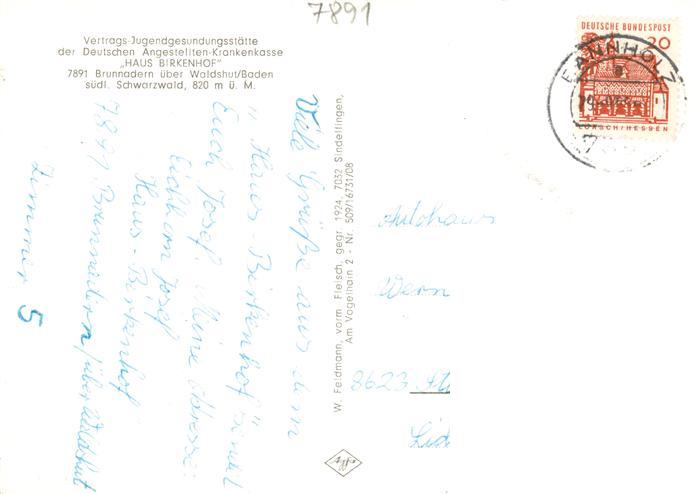 7891
Vertrags-Jugendgesundungsstätte
der Deutschen Angestellten-Krankenkasse
„HAUS BIRKENHOF"
7891 Brunnadern über Waldshut/Baden
südl. Schwarzwald, 820 m ü. M.
DEUTSCHE BUNDESPOST
20
LORSCH/HESSEN
Viele Grüße aus dem
„Haus-Birkenhof" sendet
Euch Josef. Meine Adresse:
Eichhorn Josef
Haus-Birkenhof
7891 Brunnadern/über Waldshut
Zimmer 5
W. Feldmann, vorm Fleisch, gegr. 1924, 7032 Sindelfingen,
Am Vogelhain 2 - Nr. 509/16731/08
Autohaus
Wern
8623
Agfa